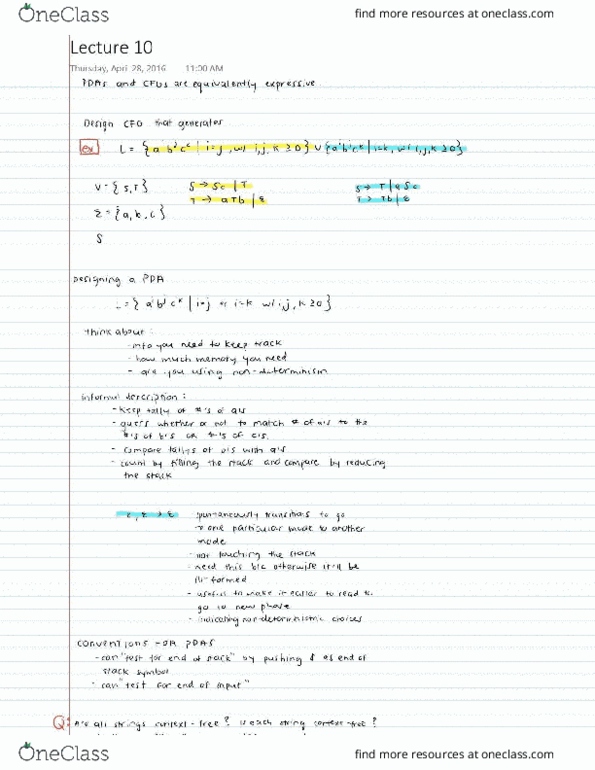 OneClass
find more resources at oneclass.com
Lecture 10
Thursday, April 28, 2016 11:00 AM
PDAs and CFGs are equivalently expressive
Design CFG that generates
ex L = {a b^j c^k | i=j, w/ i,j,k ≥ 0} ∪ {a^i b^j c^k | i=k, w/ i,j,k ≥ 0}
V = {S,T} S → Sc | T S → T | aSc
Σ = {a,b,c} T → aTb | ε T → Tb | ε
S
Designing a PDA
L = { a^i b^j c^k | i=j or i=k w/ i,j,k ≥ 0}
Think about:
- info you need to keep track
- how much memory you need
- are you using non-determinism
informal description:
- keep tally of #'s of a's
- guess whether or not to match # of a's to the
#'s of b's or #'s of c's.
- compare tallys of b's with a's
- count by filling the stack and compare by reducing
the stack
ε, ε → ε spontaneously transitions to go
one particular mode to another
mode
- not touching the stack
- need this b/c otherwise it'll be
ill-formed
- useful to make it easier to read to
go to new phase
- indicating non-deterministic choices
CONVENTIONS FOR PDAS
- can "test for end of stack" by pushing $ as end of
stack symbol
- can "test for end of input"
Q: Are all strings context-free? is each string context-free?
OneClass
find more resources at oneclass.com